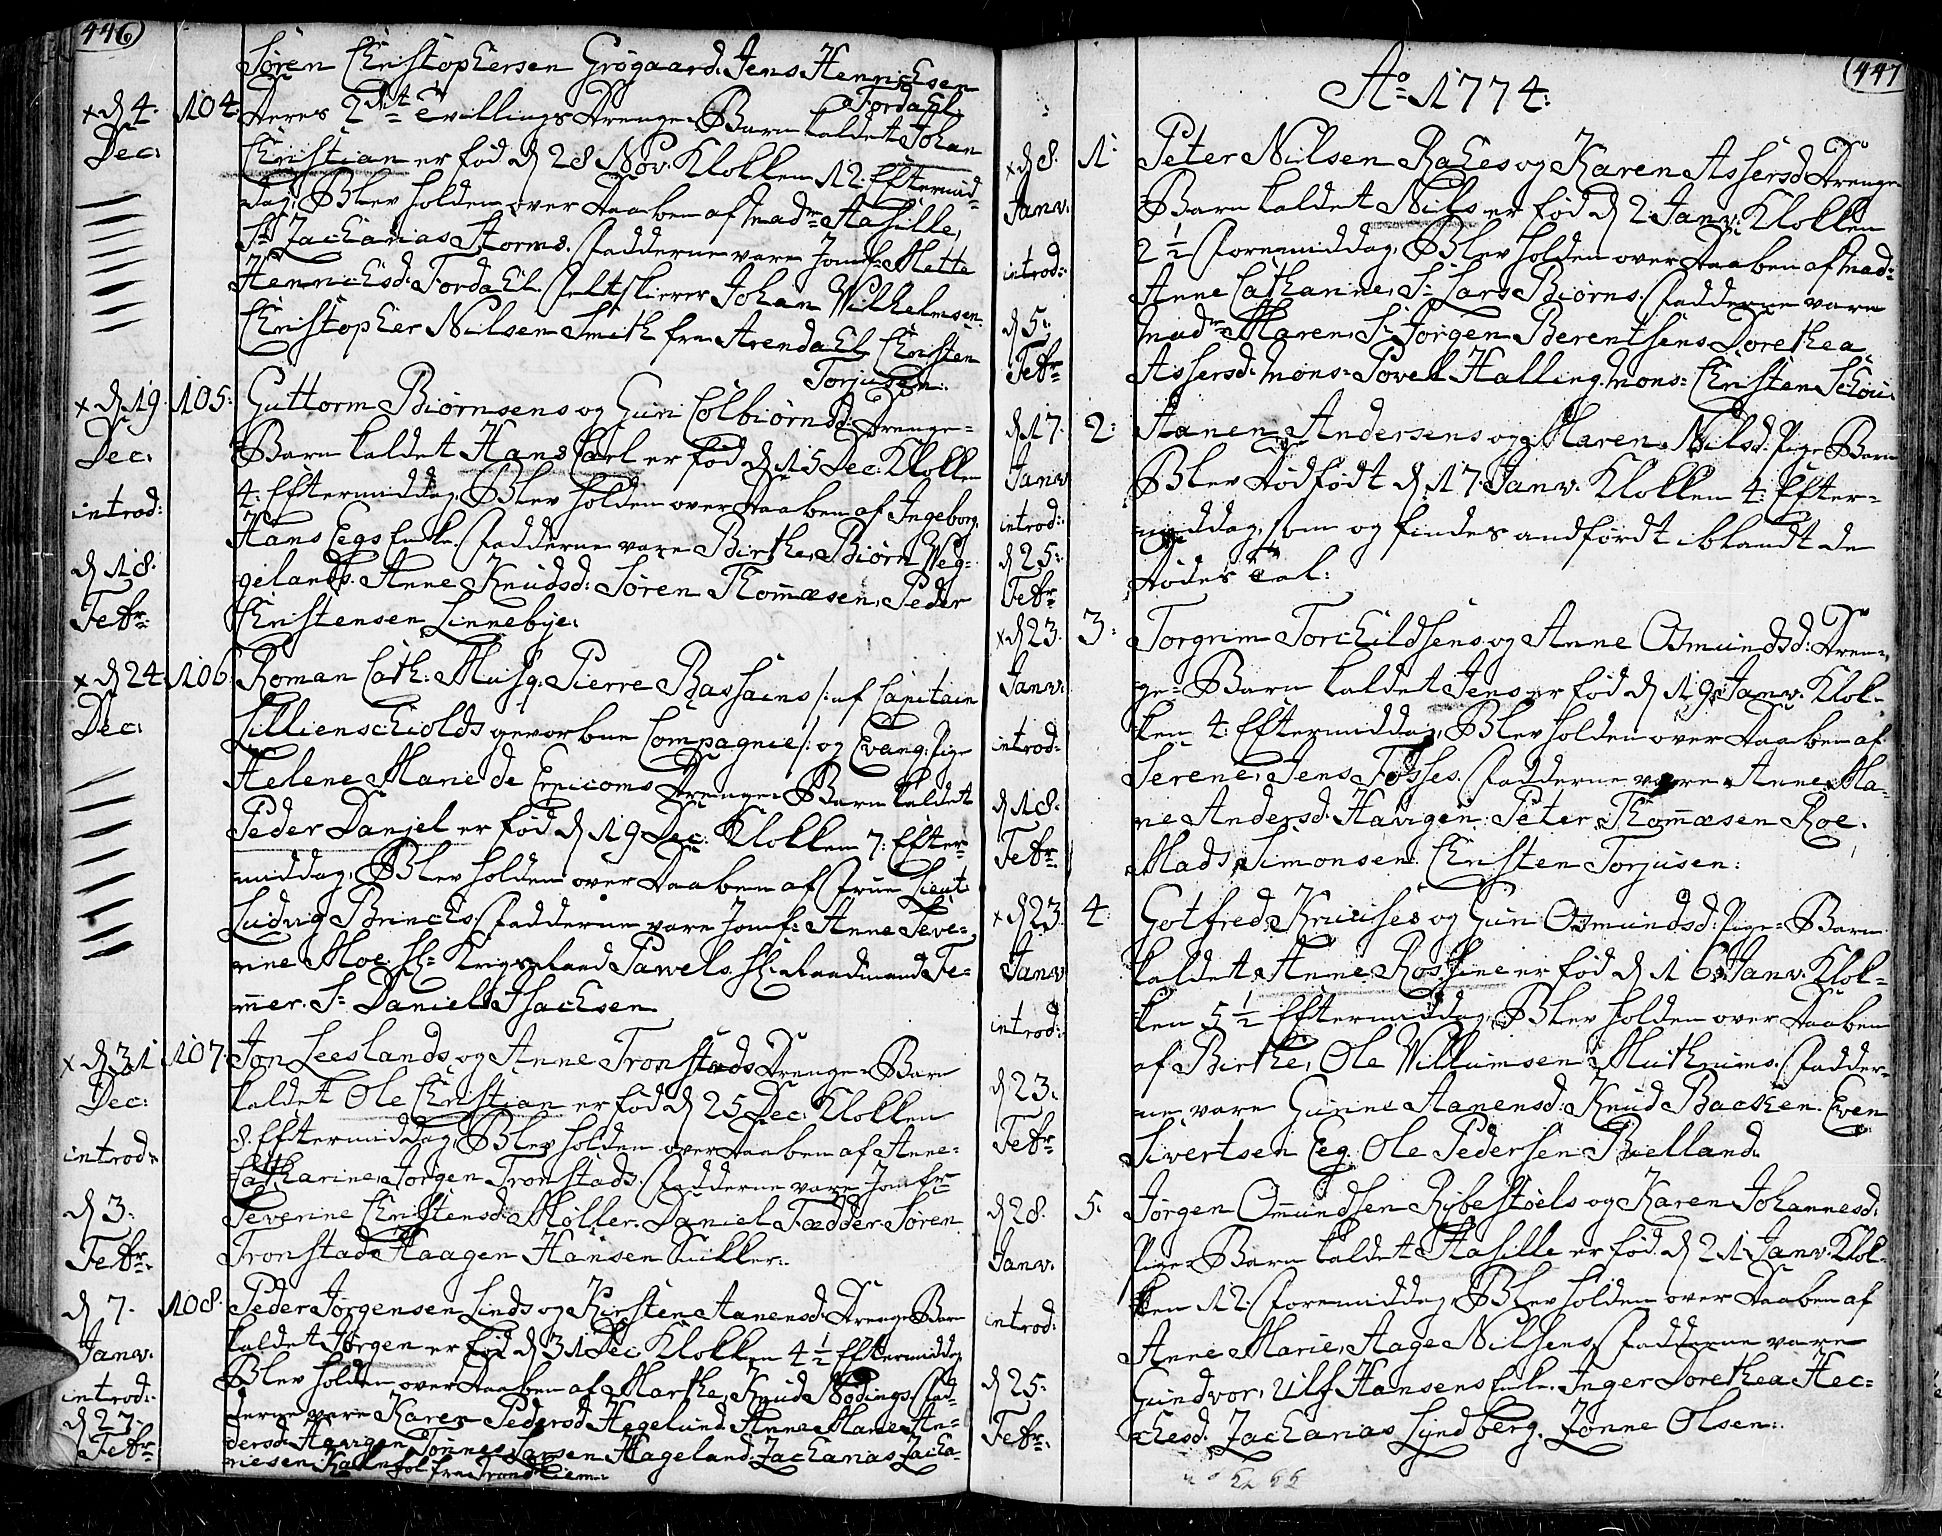 446
Søren Christophersen Grögaard. Jens Henrichsen
Fordahl.
x d 4. 104. Deres 2det Tvillings Drenge-Barn kaldet Johan
Dec: Christian er fød d 28 Nov: Klokken 12. Eftermid-
dag, Blev holden over Daaben af Madme Aasille,
Sr Zacharias Storms. Fadderne vare Jomf: Mette
Henrichsd: Fordahl. Feltskierer Johan Wilhelmsen.
Christopher Nilsen Smith fra Arendahl Christen
Torjusen.
x d 19. 105. Guttorm Biørnsens og Guri Colbiørnsd: Drenge-
Dec: Barn kaldet Hans Carl er fød d 15 Dec: Klokken
4. Eftermiddag, Blev holden over Daaben af Ingeborg,
introd: Hans Eegs Enke. Fadderne vare Birthe, Biørn Weg-
d 18. gelands. Anne Knudsd: Søren Thomæsen, Peder
Febr: Christensen Linnebye.
x d 24 106. Roman Cath: Musq: Pierre Bassains /: af Capitain
Dec: Lillienschiolds gevorbne Compagnie :/ og Evang: Pige
Helene Marie de Drenge-Barn kaldet
Peder Daniel er fød d 19 Dec: Klokken 7. Efter-
middag, Blev holden over Daaben af Frue Lieut:
Ludvig Brinchs. Fadderne vare Jomf: Anne Seve-
rine Moe. Hr: Krigsraad Pawels. Hr: Raadmand Fe-
mer. Sr Daniel Isachsen
x d 31 107. Jon Leeslands og Anne Tronstads Drenge-Barn
Dec: kaldet Ole Christian er fød d 25 Dec: Klokken
introd: 8. Eftermiddag, Blev holden over Daaben af Anne-
Catharine, Jørgen Tronstads. Fadderne vare Jomfr:
d 3. Severine Christensd: Møller. Daniel Fædder. Søren
Febr: Tronstad. Haagen Hansen
d 7. 108. Peder Jørgensen Linds og Kirsten Aanensd: Drenge-Barn
Janv. kaldet Jørgen er fød d 31 Dec: Klokken 4 1/2 Eftermiddag
introd: Blev holden over Daaben af Marthe, Knud Nødings. Fad-
d 27. derne vare Karen Pedersd: Hegelund. Anne Marie An-
Febr: dersd: Havigen. Tønnes Larsen Hageland. Zacharias Zacha-
riesen fra Trondhiem.
447
Ao 1774.
x d 8. 1. Peter Nilsen Rahes og Karen Assersd: Drenge-
Janv. Barn kaldet Nils er fød d 2 Janv. Klokken
introd: 2 1/2 Formiddag, Blev holden over Daaben af Mad:
Anne Cathanine, Sr Lars Biørns. Fadderne vare
d 5. Madme Maren, Sr Jørgen Berentsens Dorethea
Febr: Assersd: Mons: Povel Halling. Mons: Christen Schou.
d 17. 2. Aanen Andersens og Maren Nilsd: Pige-Barn
Janv Blev Dødfødt d 17. Janv. Klokken 4. Efter-
introd: middag, som og findes andfördt iblandt de
d 25.
Febr: Dødes Tal.
x d 23. 3. Torgrim Torchildsens og Anne Osmundsd: Dren-
Janv. ge-Barn kaldet Jens er fød d 19 Janv. Klok-
introd: ken 4. Eftermiddag, Blev holden over Daaben af
Serene, Jens Fosses. Fadderne vare Anne Ma-
d 18. rie Andersd: Havigen. Peter Thomæsen Roe.
Febr: Mads Simonsen. Christen Torjusen.
x d 23. 4. Gotfred Kruuses og Guri Osmundsd: Pige-Barn
Janv kaldet Anne Rossine er fød d 16 Janv. Klok-
introd: ken 5 1/2 Eftermiddag, Blev holden over Daaben
af Birthe, Ole Willumsen Fadder-
d 23. ne vare Gunne Aanensd: Knud Backen. Even
Febr: Sivertsen Eeg. Ole Pedersen Bielland.
d 28. 5. Jørgen Omundsen Rybestøels og Karen Johannesd:
Janv. Pige-Barn kaldet Aasille er fød d 21 Janv. Klok-
introd: ken 12. Formiddag, Blev holden over Daaben af
Anne Marie, Aage Nilsens, Fadderne vare
d 25. Gundvor, Ulf Hansens Enke. Inger Dorethea Hec-
Febr: chesd: Zacharias Lyndberg. Zønne Olsen.